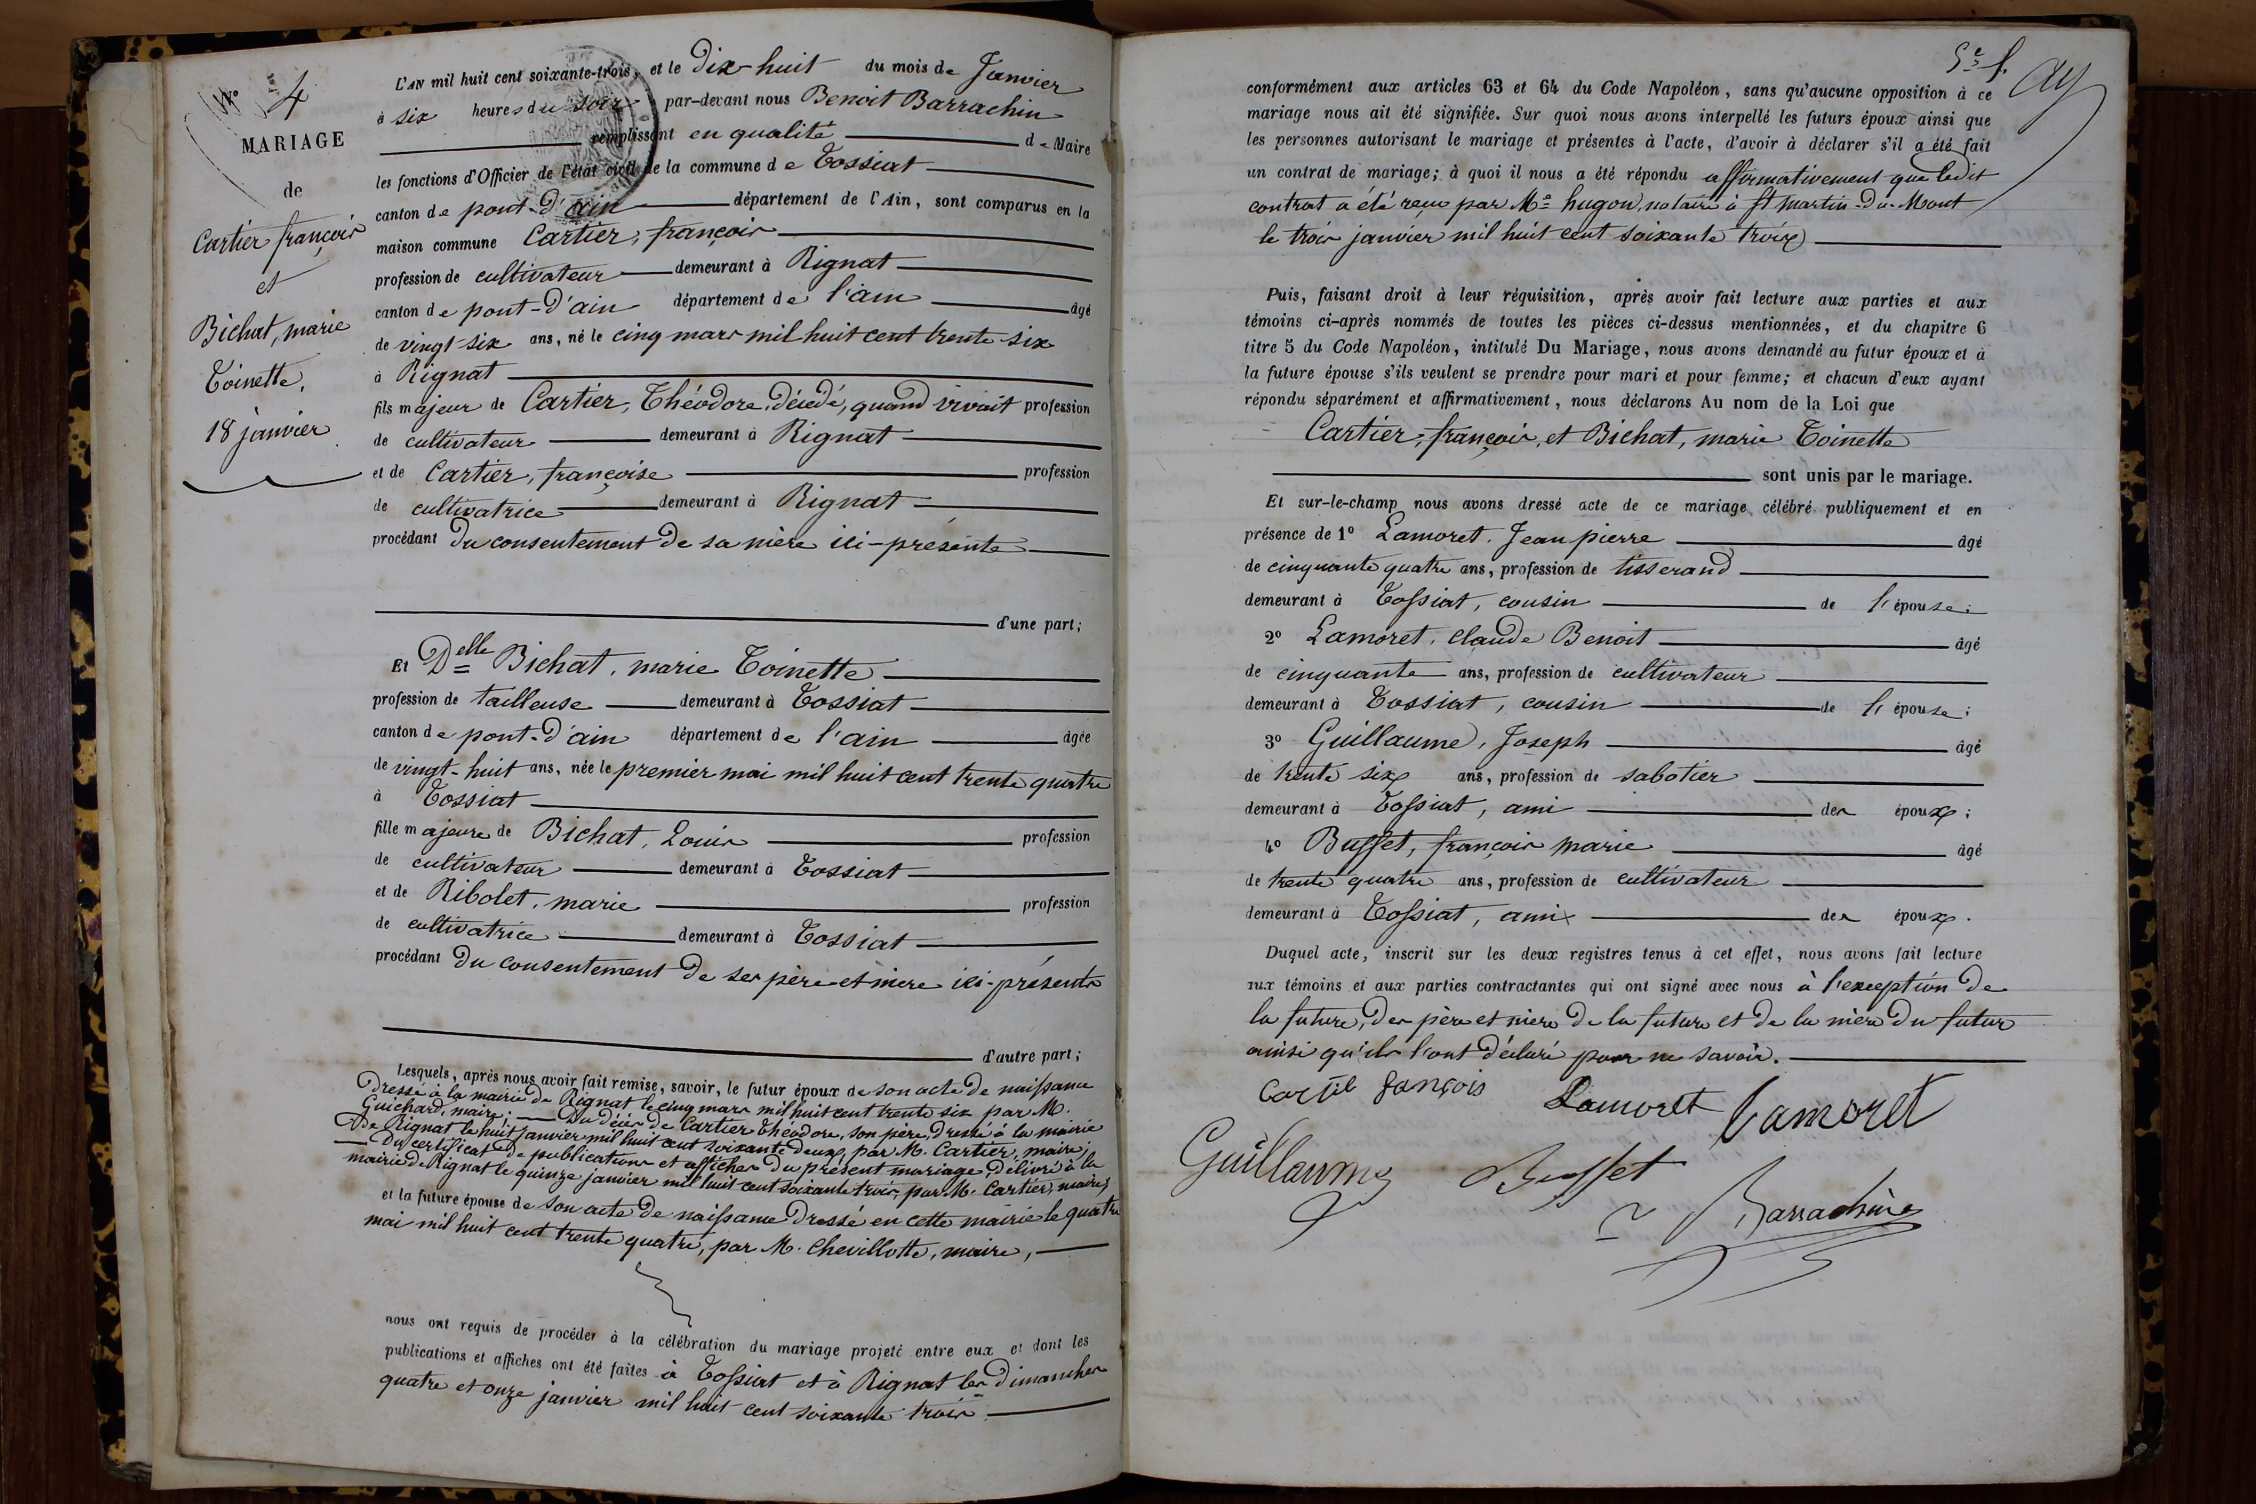 N° 4
MARIAGE
de
Cartier françois
et
Bichat, marie
Toinette,
18 janvier
L'AN mil huit cent soixante-trois, et le dix-huit du mois de Janvier
à six heures du soir par-devant nous Benoit Barrachin
remplissant en qualité de Maire
les fonctions d'Officier de l'état civil de la commune de Tossiat
canton de pont-d'ain département de l'Ain, sont comparus en la
maison commune Cartier, françois
profession de cultivateur demeurant à Rignat
canton de pont-d'ain département de l'ain âgé
de vingt-six ans, né le cinq mars mil huit cent trente-six
à Rignat
fils majeur de Cartier, Théodore, décédé, quand vivait profession
de cultivateur demeurant à Rignat
et de Cartier, françoise profession
de cultivatrice demeurant à Rignat
procédant du consentement de sa mère ici-présente
d'une part;
Et Delle Bichat, marie Toinette
profession de tailleuse demeurant à Tossiat
canton de pont-d'ain département de l'ain âgée
de vingt-huit ans, née le premier mai mil huit cent trente quatre
à Tossiat
fille majeure de Bichat, Louis profession
de cultivateur demeurant à Tossiat
et de Ribolet, marie profession
de cultivatrice demeurant à Tossiat
procédant du consentement de ses père et mère ici-présents
d'autre part;
Lesquels, après nous avoir fait remise, savoir, le futur époux de son acte de naissance
dressé à la mairie de Rignat le cinq mars mil huit cent trente six par M.
Guichard, maire; Du décès de Cartier Théodore, son père, dressé à la mairie
De Rignat le huit janvier mil huit cent soixante deux, par M. Cartier, maire;
Du certificat de publications et affiches du présent mariage délivré à la
mairie de Rignat le quinze janvier mil huit cent soixante trois, par M. Cartier, maire;
et la future épouse de son acte de naissance dressé en cette mairie le quatre
mai mil huit cent trente quatre, par M. Chevillotte, maire,
nous ont requis de procéder à la célébration du mariage projeté entre eux et dont les
publications et affiches ont été faites à Tossiat et à Rignat les dimanches
quatre et onze janvier mil huit cent soixante trois
5e f.
conformément aux articles 63 et 64 du Code Napoléon, sans qu'aucune opposition à ce
mariage nous ait été signifiée. Sur quoi nous avons interpellé les futurs époux ainsi que
les personnes autorisant le mariage et présentes à l'acte, d'avoir à déclarer s'il a été fait
un contrat de mariage; à quoi il nous a été répondu affirmativement que ledit
contrat a été reçu par Me hugon, notaire à St martin-du-Mont
le trois janvier mil huit cent soixante trois
Puis, faisant droit à leur réquisition, après avoir fait lecture aux parties et aux
témoins ci-après nommés de toutes les pièces ci-dessus mentionnées, et du chapitre 6
titre 5 du Code Napoléon, intitulé Du Mariage, nous avons demandé au futur époux et à
la future épouse s'ils veulent se prendre pour mari et pour femme; et chacun d'eux ayant
répondu séparément et affirmativement, nous déclarons Au nom de la Loi que
Cartier, françois, et Bichat, marie Toinette
sont unis par le mariage.
Et sur-le-champ nous avons dressé acte de ce mariage célébré publiquement et en
présence de 1° Lamoret, Jean pierre âgé
de cinquante quatre ans, profession de tisserand
demeurant à Tossiat, cousin de l'épouse;
2° Lamoret, claude Benoit âgé
de cinquante ans, profession de cultivateur
demeurant à Tossiat, cousin de l'épouse;
3° Guillaume, Joseph âgé
de trente six ans, profession de sabotier
demeurant à Tossiat, ami des époux;
4° Buffet, françois marie âgé
de trente quatre ans, profession de cultivateur
demeurant à Tossiat, ami des époux.
Duquel acte, inscrit sur les deux registres tenus à cet effet, nous avons fait lecture
aux témoins et aux parties contractantes qui ont signé avec nous à l'exception de
la future, des père et mère de la future et de la mère du futur
ainsi qu'ils l'ont déclaré pour ne savoir.
Lamoret Lamoret
Guillaume Buffet Barrachin